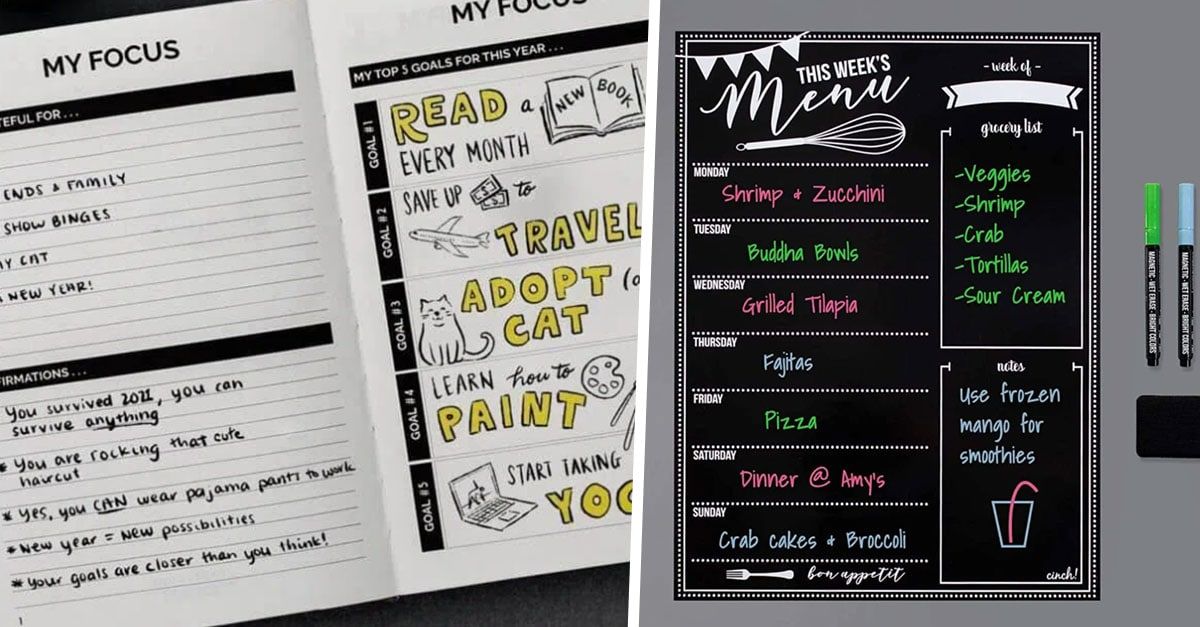 MY FOCUS
TEFUL FOR...
ENDS & FAMILY
SHOW BINGES
CAT
NEW YEAR!
FIRMATIONS...
You survived 2021, you can
survive anything
* You are rocking that cute
haircut
* Yes, you CAN wear pajama pants to work
* New year = New possibilities
* Your goals are closer than you think!
MY FOCUS
MY TOP 5 GOALS FOR THIS YEAR...
GOAL #1
READ a
EVERY MONTH
NEW BOOK
GOAL #2
SAVE UP to
TRAVEL
GOAL #3
ADOPT (a
CAT
GOAL #4
LEARN how to
PAINT
GOAL #5
START TAKING
YOG
THIS WEEK'S
Menu
MONDAY
Shrimp & Zucchini
TUESDAY
Buddha Bowls
WEDNESDAY
Grilled Tilapia
THURSDAY
Fajitas
FRIDAY
Pizza
SATURDAY
Dinner @ Amy's
SUNDAY
Crab cakes & Broccoli
bon appetit
- week of -
grocery list
-Veggies
-Shrimp
-Crab
-Tortillas
-Sour Cream
notes
Use frozen
mango for
smoothies
cinch!
MAGNETIC • WET ERASE • BRIGHT COLORS
MAGNETIC • WET ERASE • BRIGHT COLORS